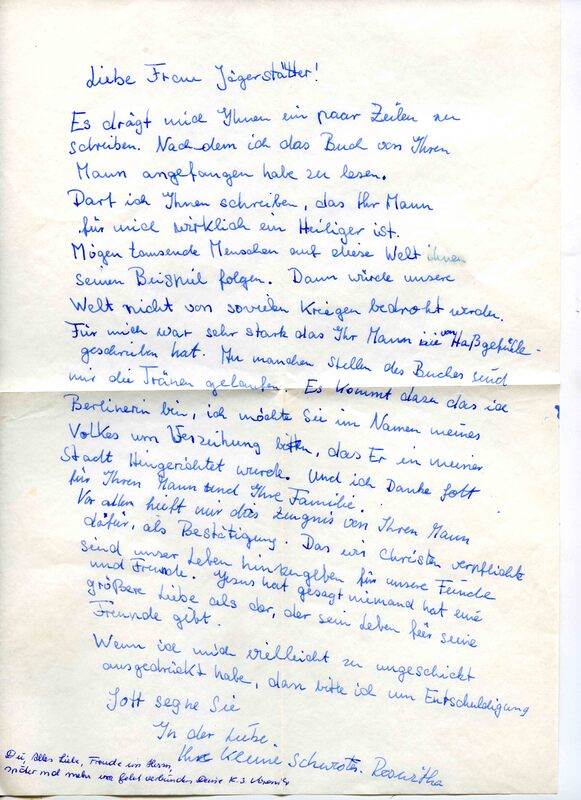 Liebe Frau Jägerstätter!
Es drägt mich Ihnen ein paar Zeilen zu
schreiben. Nach dem ich das Buch von Ihren
Mann angefangen habe zu lesen.
Darf ich Ihnen schreiben, das Ihr Mann
für mich wirklich ein Heiliger ist.
Mögen tausende Menschen auf diese Welt ihnen
seinen Beispiel folgen. Dann würde unsere
Welt nicht von sovielen Kriegen bedroht werden.
Für mich war sehr stark das Ihr Mann nie von Haßgefühle
geschrieben hat. An manchen Stellen des Buches sind
mir die Tränen gelaufen. Es kommt dazu das ich
Berlinerin bin, ich möchte Sie im Namen meines
Volkes um Verzeihung bitten, das Er in meiner
Stadt Hingerichtet wurde. Und ich Danke Gott
für Ihren Mann und Ihre Familie.
Vor allen hielft mir das Zeugnis von Ihren Mann
dafür, als Bestätigung. Das wir Christen verpflichte
sind unser Leben hinzugeben für unsere Feinde
und Freunde. Jesus hat gesagt niemand hat eine
größere Liebe als der, der sein Leben für seine
Freunde gibt.
Wenn ich mich vielleicht zu ungeschickt
ausgedrückt habe, dan bitte ich um Entschuldigung
Gott segne Sie
In der Liebe.
Ihre Kleine Schwester. Roswitha
Alles Liebe, Freude im Herrn,
später mal mehr verbunden K. S.